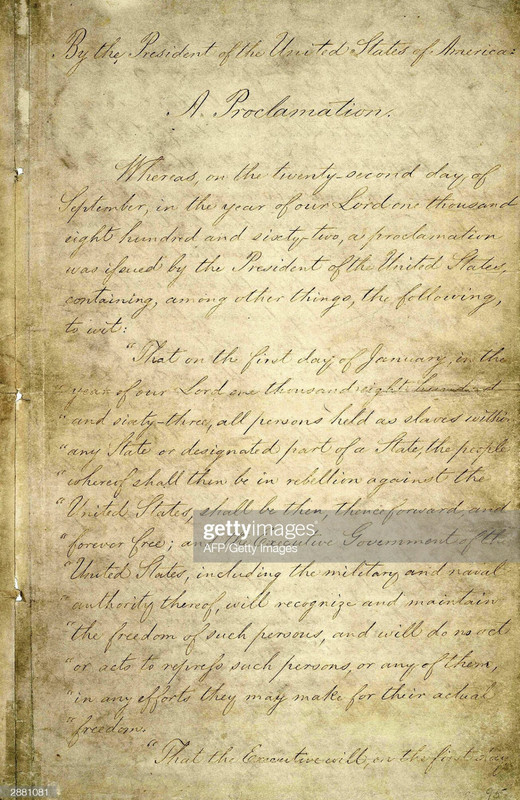 By the President of the United States of America:
A Proclamation.
Whereas, on the twenty-second day of
September, in the year of our Lord one thousand
eight hundred and sixty-two, a proclamation
was issued by the President of the United States,
containing, among other things, the following,
to wit:
"That on the first day of January, in the
year of our Lord one thousand eight hundred
"and sixty-three, all persons held as slaves within
"any State or designated part of a State, the people
"whereof shall then be in rebellion against the
"United States, shall be then, thenceforward, and
"forever free; and the Executive Government of the
"United States, including the military and naval
"authority thereof, will recognize and maintain
"the freedom of such persons, and will do no act
"or acts to repress such persons, or any of them,
"in any efforts they may make for their actual
"freedom.
"That the Executive will, on the first day
gettyimages
AFP/Getty Images
2881081
95